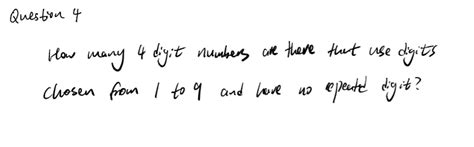 Question 4
How many 4 digit numbers are there that use digits
chosen from 1 to 9 and have no repeated digit?